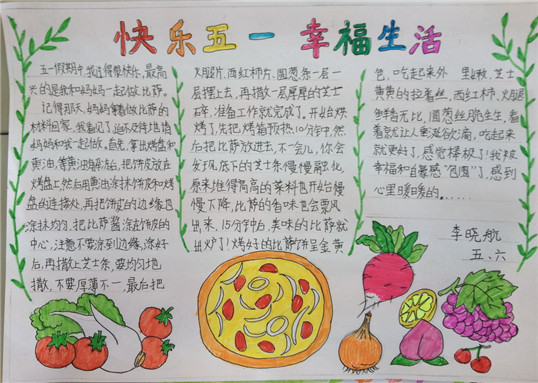 快乐五一 幸福生活
五一假期中,我过得很快乐,最高
兴的是我和妈妈一起做比萨。
记得那天,妈妈拿着做比萨的
材料回家。我看见了,迫不及待地请
妈妈和我一起做。首先,拿出烤盘和
黄油,等黄油融化后,把饼皮放在
烤盘上,然后用黄油涂抹饼皮和烤
盘的连接处,再把饼皮的边缘也
涂抹均匀,把比萨酱涂在饼皮的
中心,注意不要涂到边缘,涂好
后,再撒上芝士条,要均匀地
撒,不要厚薄不一,最后把
火腿片、西红柿片、圆葱条一层一
层摆上去,再撒一层厚厚的芝士
碎,准备工作就完成了。开始烘
烤了,先把烤箱预热10分钟,然
后把比萨放进去,不一会儿,你会
发现,底下的芝士条慢慢融化,
原来堆得高高的菜料也开始慢
慢下降,比萨的香味也会飘
出来,15分钟后,美味的比萨就
出炉了!烤好的比萨饼呈金黄
色,吃起来外 里 ,芝士
黄黄的拉着丝,西红柿、火腿
色鲜无比,圆葱丝脆生生,看
着就让人垂涎欲滴,吃起来
就更好了,感觉棒极了!我被
幸福和自豪感“包围”了,感到
心里暖暖的......
李晓航
五.六